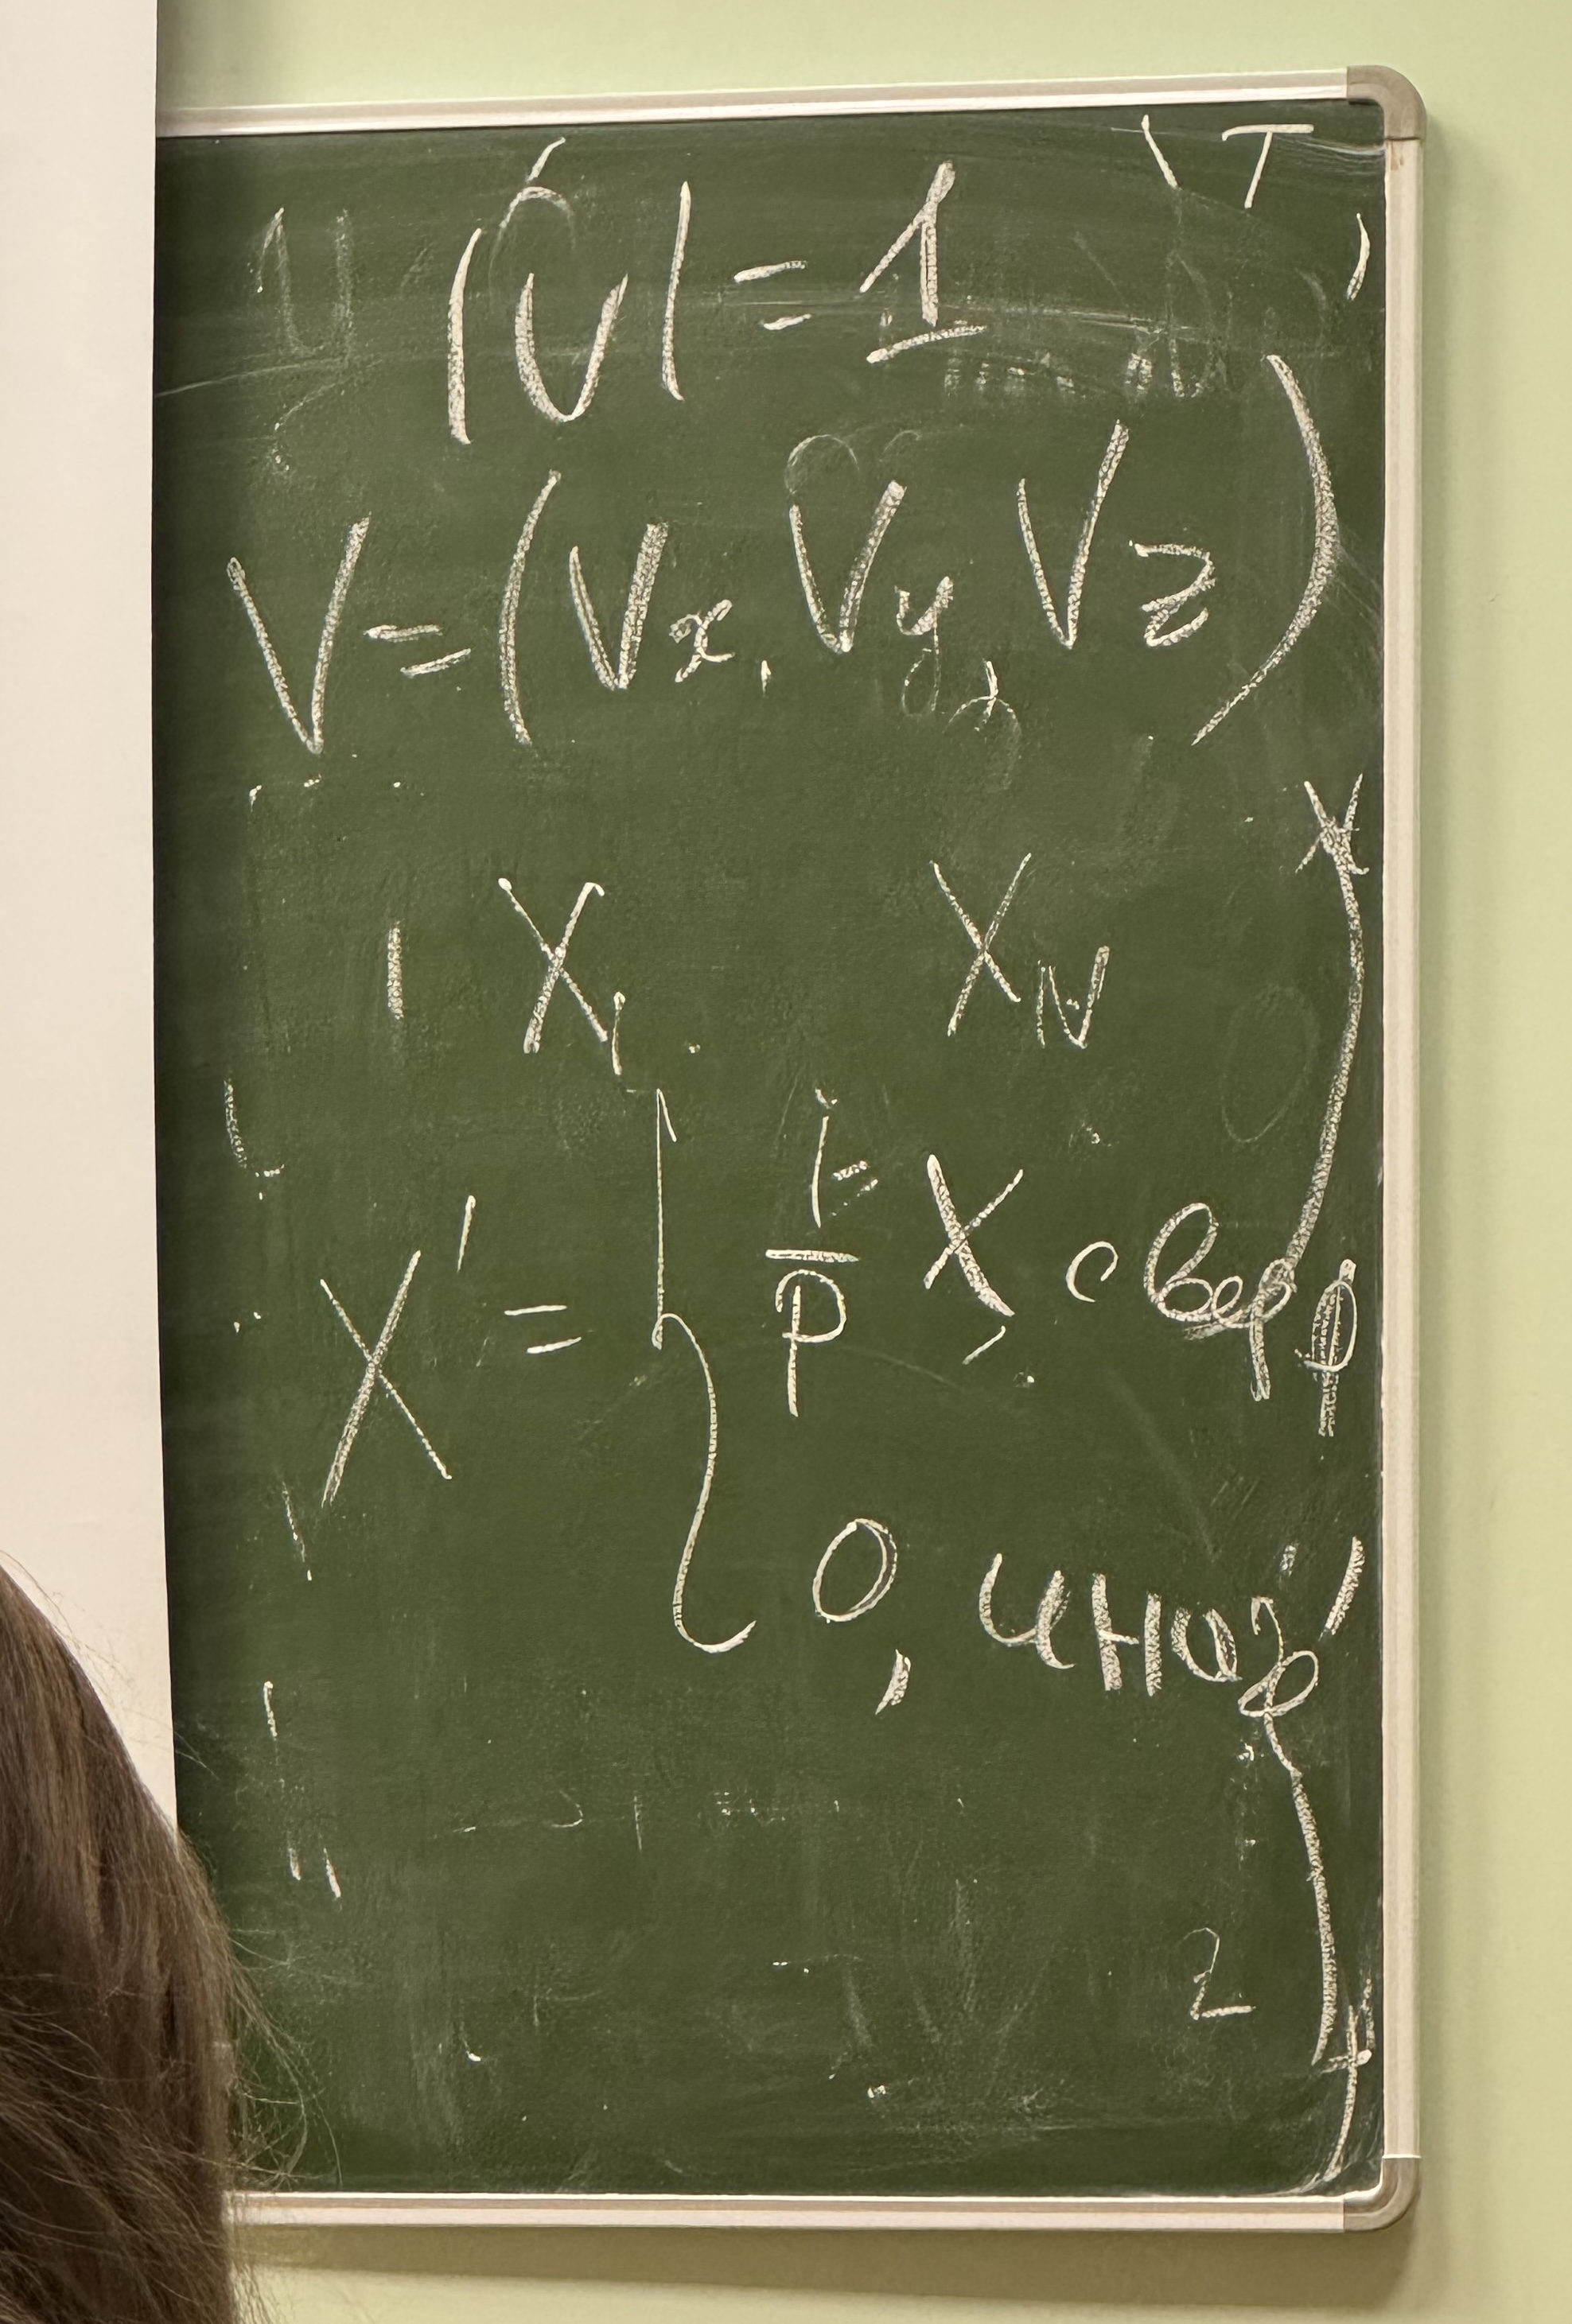 |U| = 1
V = (Vx, Vy, Vz)
X₁ X_N
X' = { 1/p X, с вер p
0, иначе
2